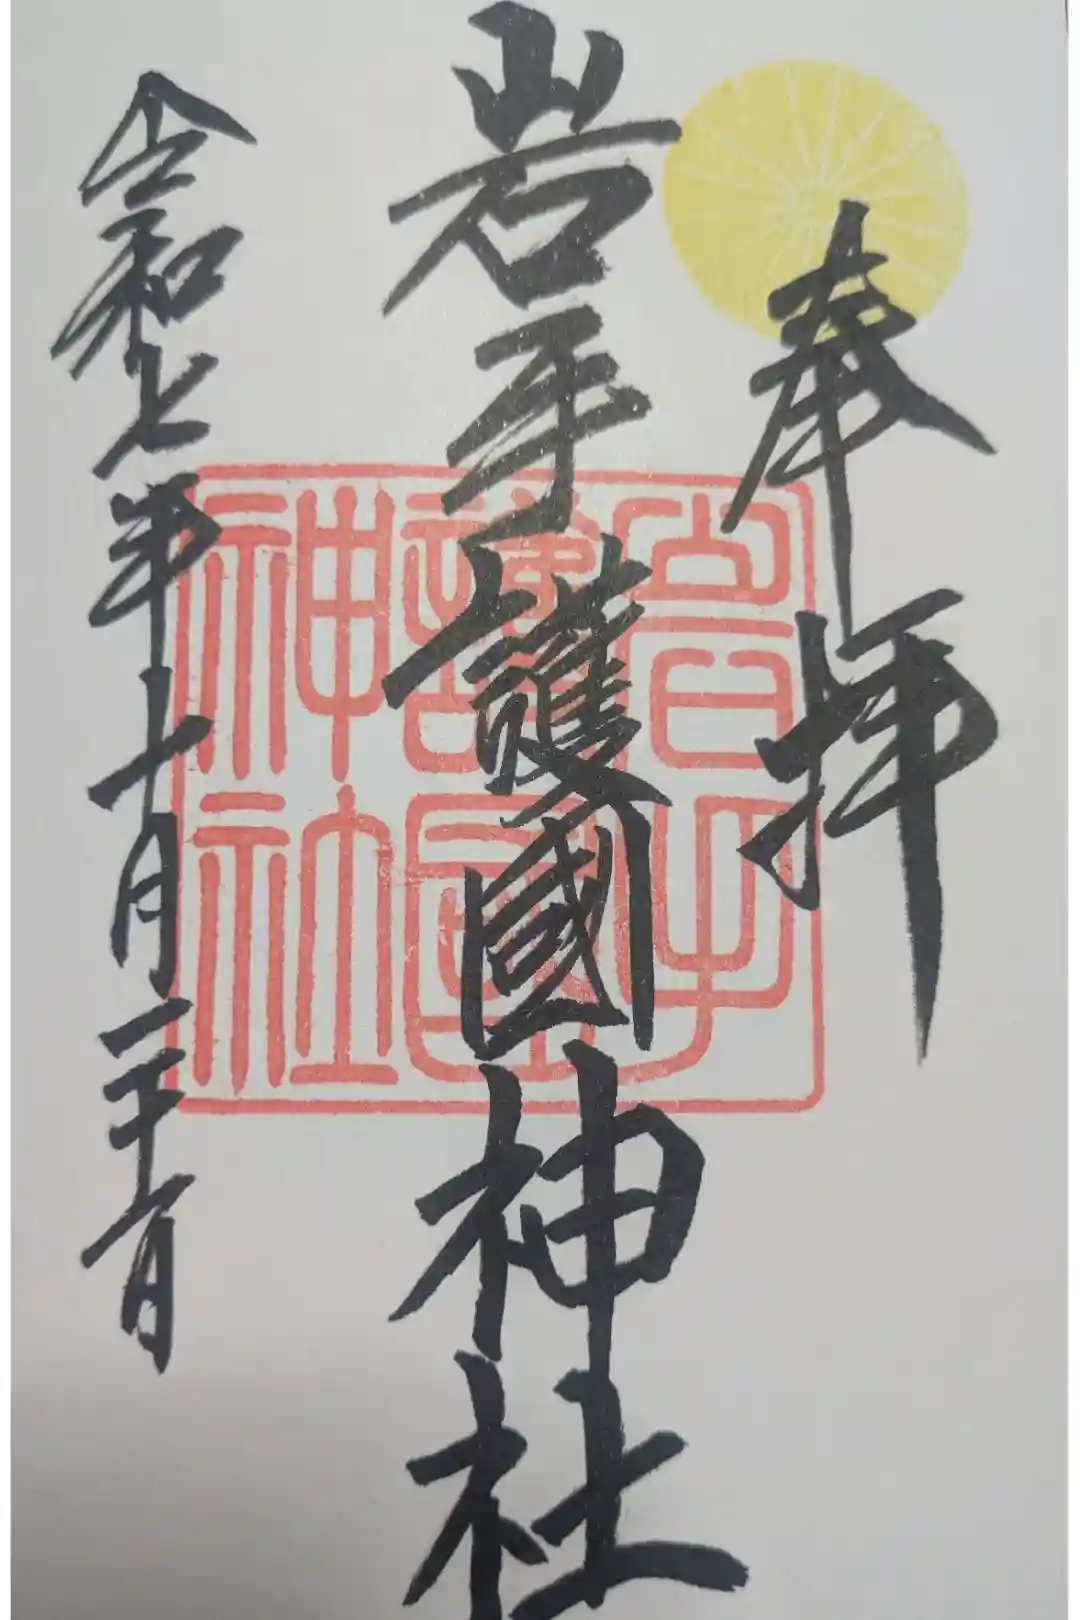 奉拝
岩手護國神社
岩手護國神社
令和七年十月二十一日